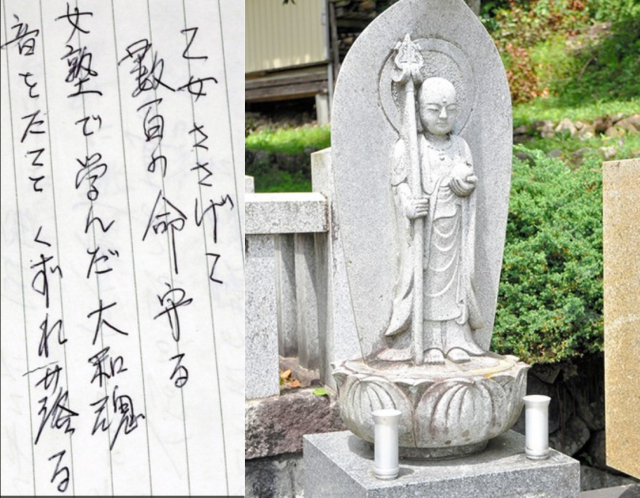 乙女ささげて
数百の命守る
女塾で学んだ大和魂
音をたてて くずれ落る